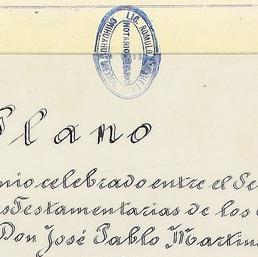 LIC. ROMULO
NOTARIO
CHIHUAHUA
Plano
nio celebrado entre el Se
s Testamentarias de los
Don José Pablo Martin